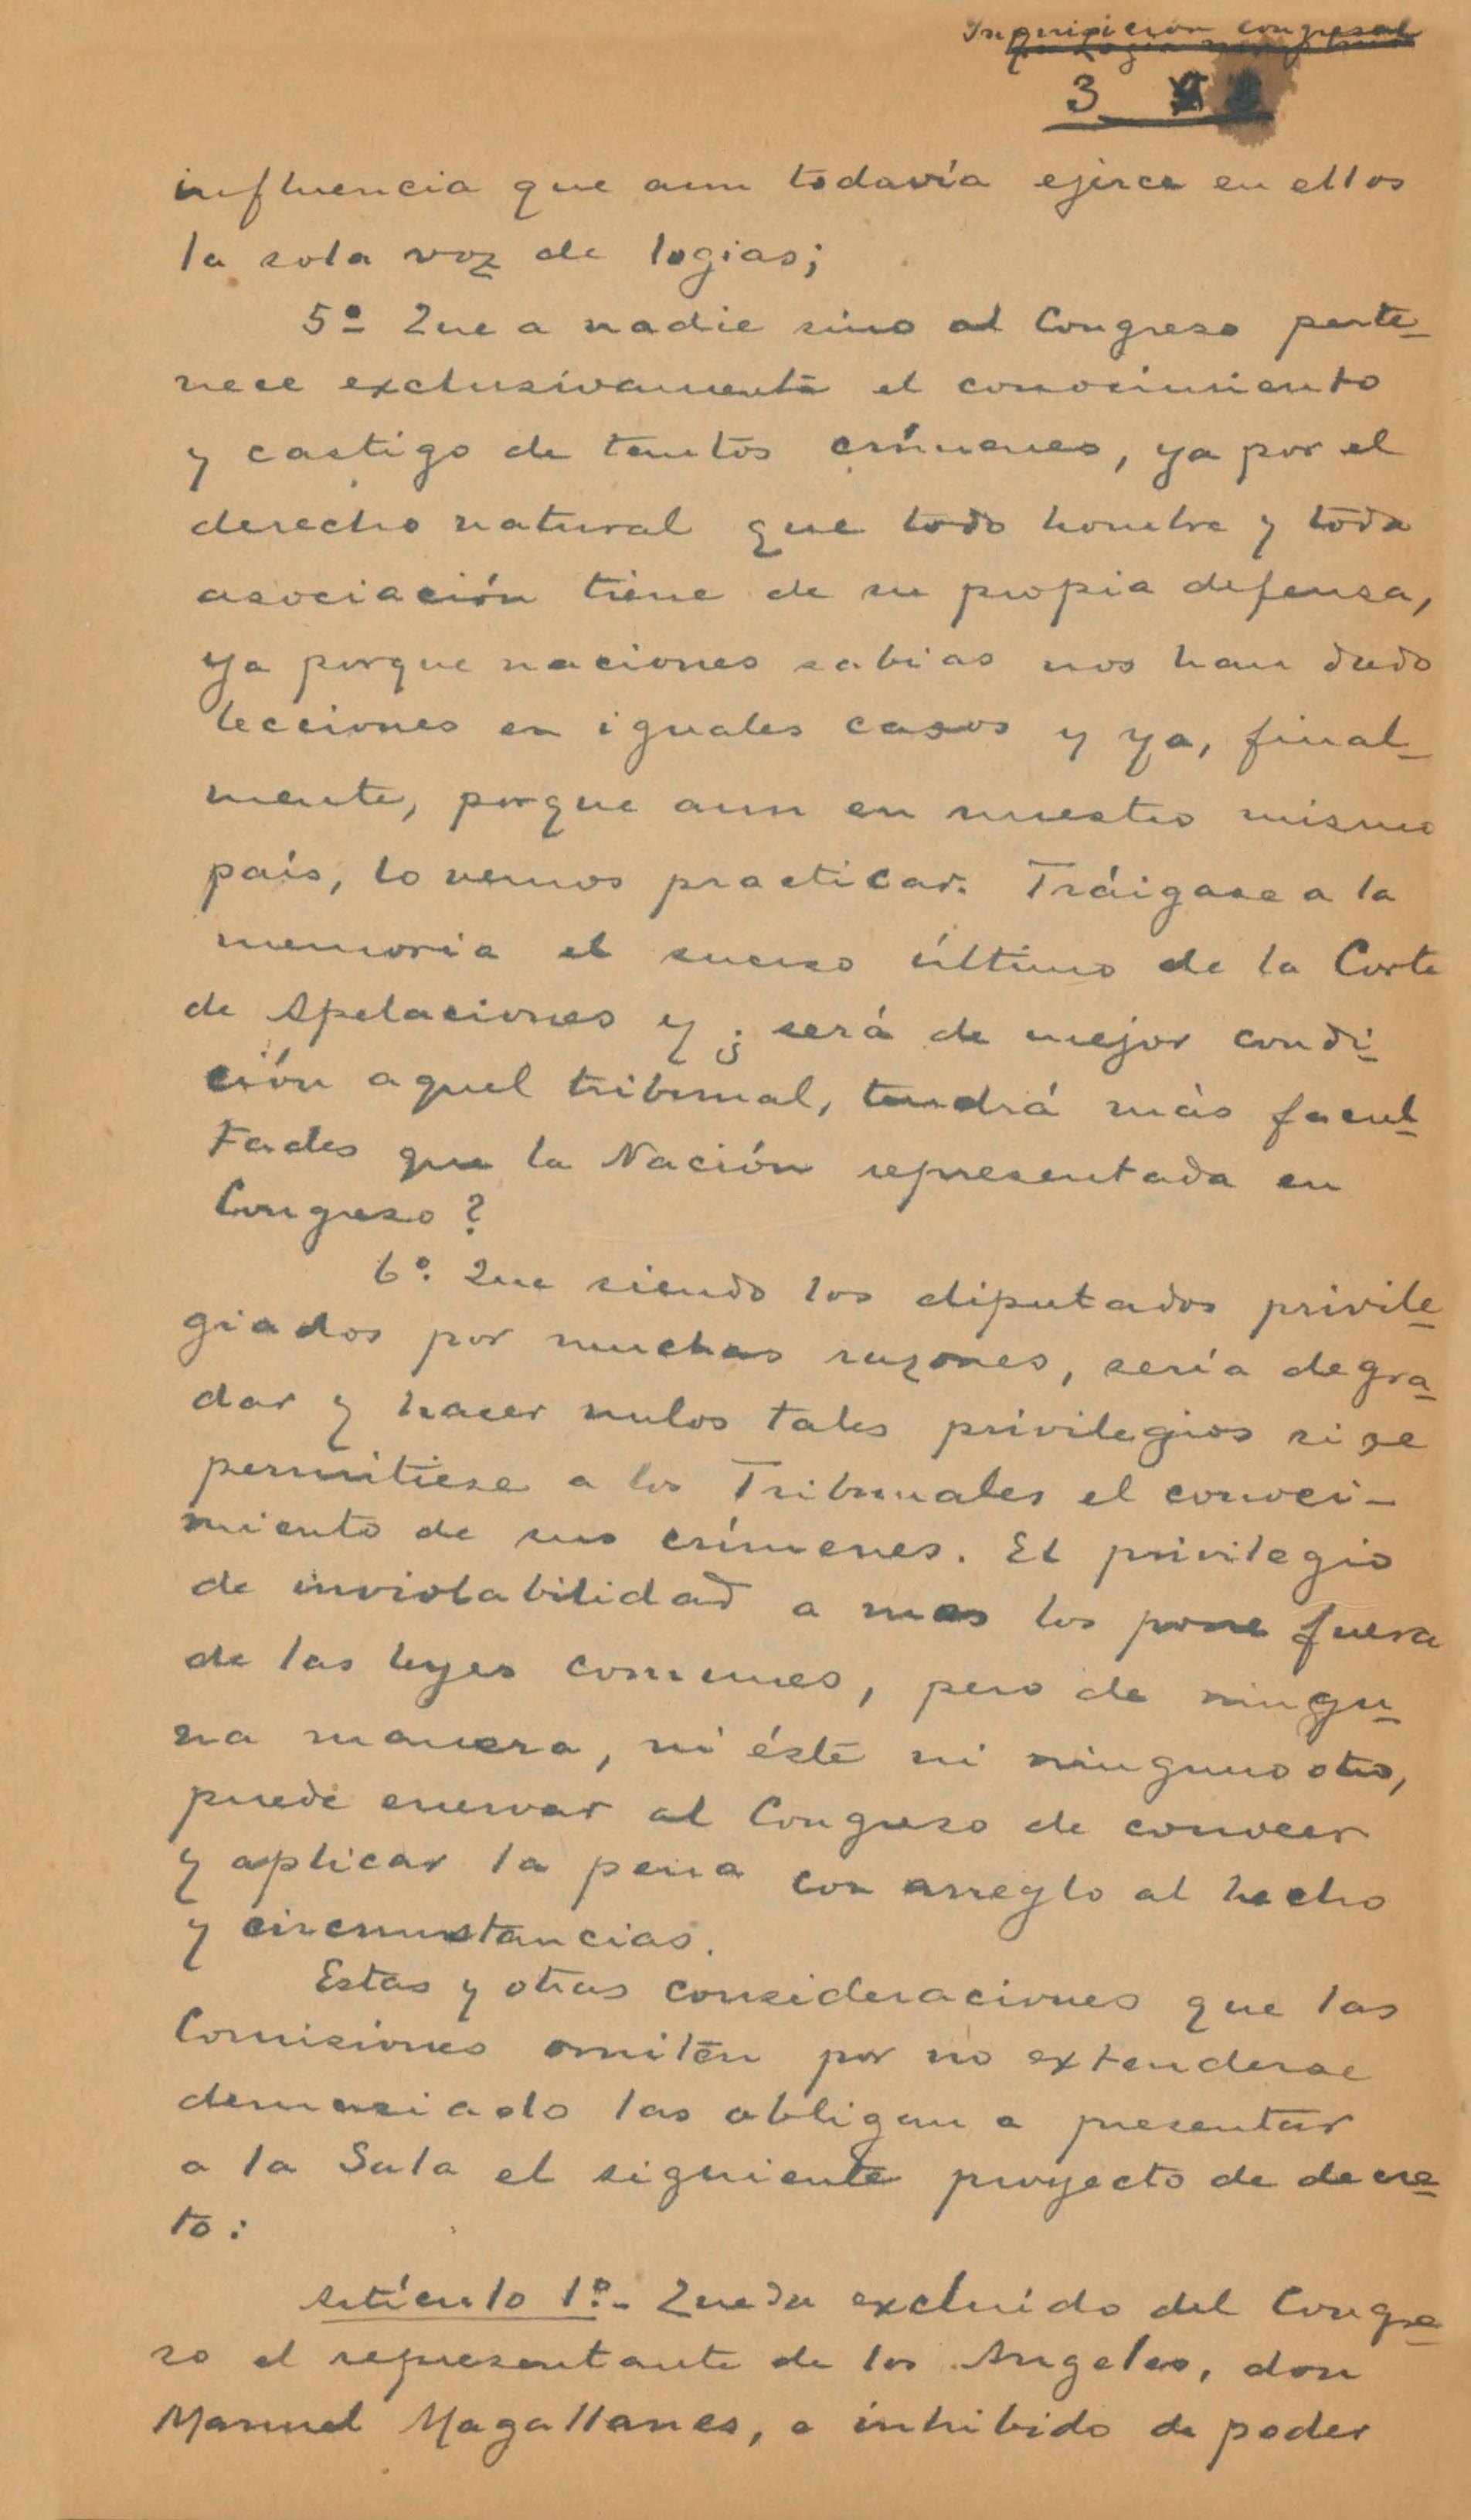 Inquisición congresal
3
influencia que aun todavía ejerce en ellos
la sola voz de logias;
5º Que a nadie sino al Congreso perte-
nece exclusivamente el conocimiento
y castigo de tantos crímenes, ya por el
derecho natural que todo hombre y toda
asociación tiene de su propia defensa,
ya porque naciones sabias nos han dado
lecciones en iguales casos y ya, final-
mente, porque aun en nuestro mismo
país, lo vemos practicar. Tráigase a la
memoria el suceso último de la Corte
de Apelaciones y ¿será de mejor condi-
ción aquel tribunal, tendrá más facul-
tades que la Nación representada en
Congreso?
6º. Que siendo los diputados privile-
giados por muchas razones, sería degra-
dar y hacer nulos tales privilegios si se
permitiese a los Tribunales el conoci-
miento de sus crímenes. El privilegio
de inviolabilidad a mas los pone fuera
de las leyes comunes, pero de ningu-
na manera, ni éste ni ninguno otro,
puede enervar al Congreso de conocer
y aplicar la pena con arreglo al hecho
y circunstancias.
Estas y otras consideraciones que las
Comisiones omiten por no extenderse
demasiado las obligan a presentar
a la Sala el siguiente proyecto de decre-
to:
Artículo 1º.- Queda excluido del Congre-
so el representante de los Angeles, don
Manuel Magallanes, e inhibido de poder